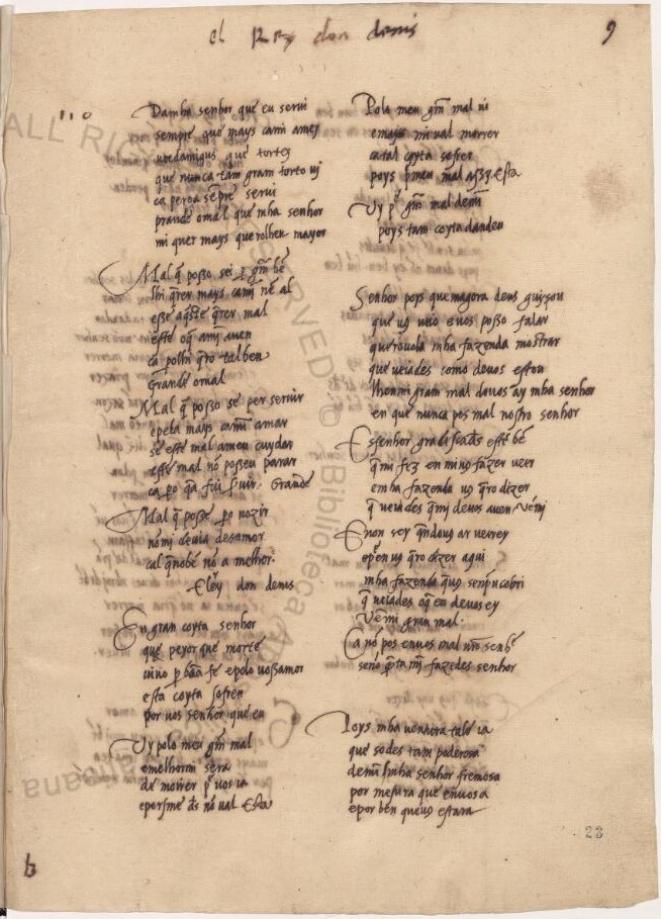 el Rey don denis
9
110
Damha senhor que eu serui
sempre que mays cami amey
ueedamigus que tortey
que nunca tam gram torto ui
ca peroa sēpre serui
grande omal que mha senhor
mi quer mays querolhen mayor
Mal q̄ posso sei
lhi q̄rer mays cami nē al
esse aq̄ste q̄rer mal
este oq̄ ami auen
ca polhi q̄ro tal ben
Grande omal
Mal q̄ posso se per seruir
epela mays cami amar
se este mal ameu cuydar
este mal nō posseu parar
ca po q̄a fui Grande
Mal q̄ posso po nozir
nōmi deuia desamor
cal q̄nobē nō a melhor
Eley don denis
En gran coyta senhor
que peyor que morte
uiuo p bōa fe epolo uossamor
esta coyta sofren
por uos senhor que eu
Uy polo meu gm̄ mal
emelhormi sera
de moirer p uos ia
eporsme ds nō ual Esta
Polo meu gm̄ mal ui
emays mi ual morrer
ca tal coyta sofrer
poys meu mal assy Esta
Uy p gm̄ mal demī
poys tam coytadandeu
Senhor poys que magora deus guysou
que uꝯ ueio euos posso falar
querouola mha fazenda mostrar
que ueiades como deuos estou
uenmi gram mal deuos ay mha senhor
en que nunca pos mal nostro senhor
E senhor gradescads este bē
q̄mi fez en mi uꝯ fazer ueer
emha fazenda uꝯ q̄ro dizer
q̄ ueiades q̄mi deuos auen Vēmi
E non sey q̄ndouꝯ ar ueerey
epēn uꝯ q̄ro dizer aqui
mha fazenda q̄uꝯ senpēncobri
q̄ ueiades oq̄ eu deuos ey
Vēmi gran mal
Ca nō pos en uos mal nrō senhr̄
senō q̄nta mī fazedes senhor
Poys mha uentura tal e ia
que sodes tam poderosa
demī mha senhor fremosa
por mesura que enuos a
epor ben queuꝯ estara
23
b
ALL RIGHTS RESERVED © Biblioteca